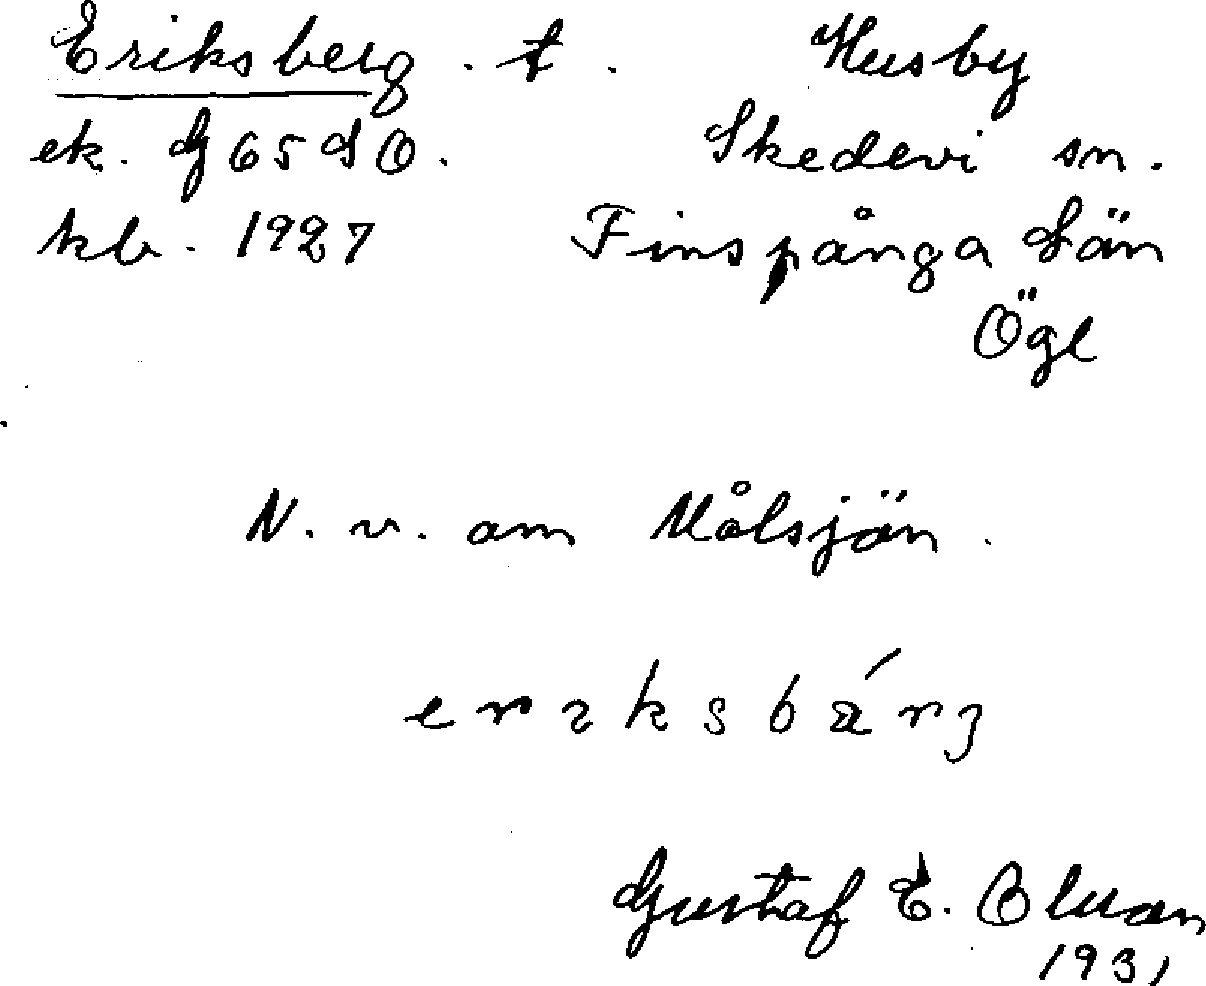 Eriksberg. t. Husby
ek. G 65 SO. Skedevi sn.
kb. 1927 Finspånga Län
Ögl
N. v. om Målsjön.
Gustaf E. 
1931